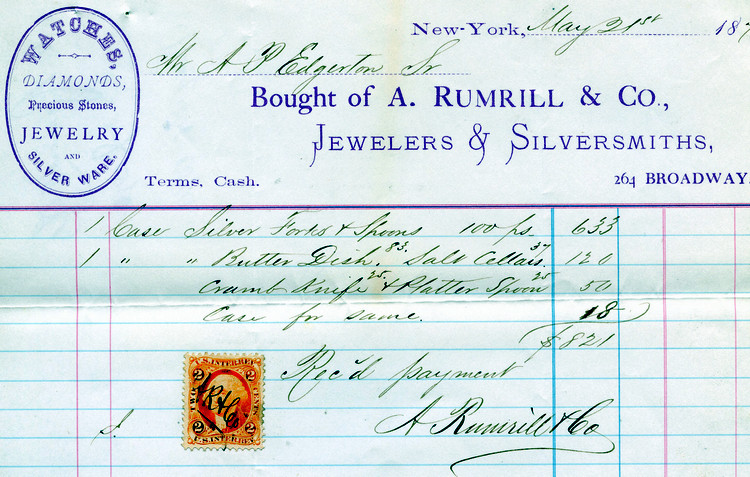 WATCHES,
DIAMONDS,
Precious Stones,
JEWELRY
AND
SILVER WARE.
New-York, May 21st 18
Mr A P Edgerton Sr
Bought of A. RUMRILL & CO.,
JEWELERS & SILVERSMITHS,
Terms, Cash.
264 BROADWAY.
1 Case Silver Forks & Spoons 100 ps. 633
1 " " Butter Dish. 83. Salt Cellars. 37 120
Crumb Knife 25. & Platter Spoon 25 50
Case for same. 18
$821
Rec'd payment
A Rumrill & Co
U.S. INTER. REV.
2 2
TWO CENTS
A R & Co
2 2
U.S. INTER. REV.